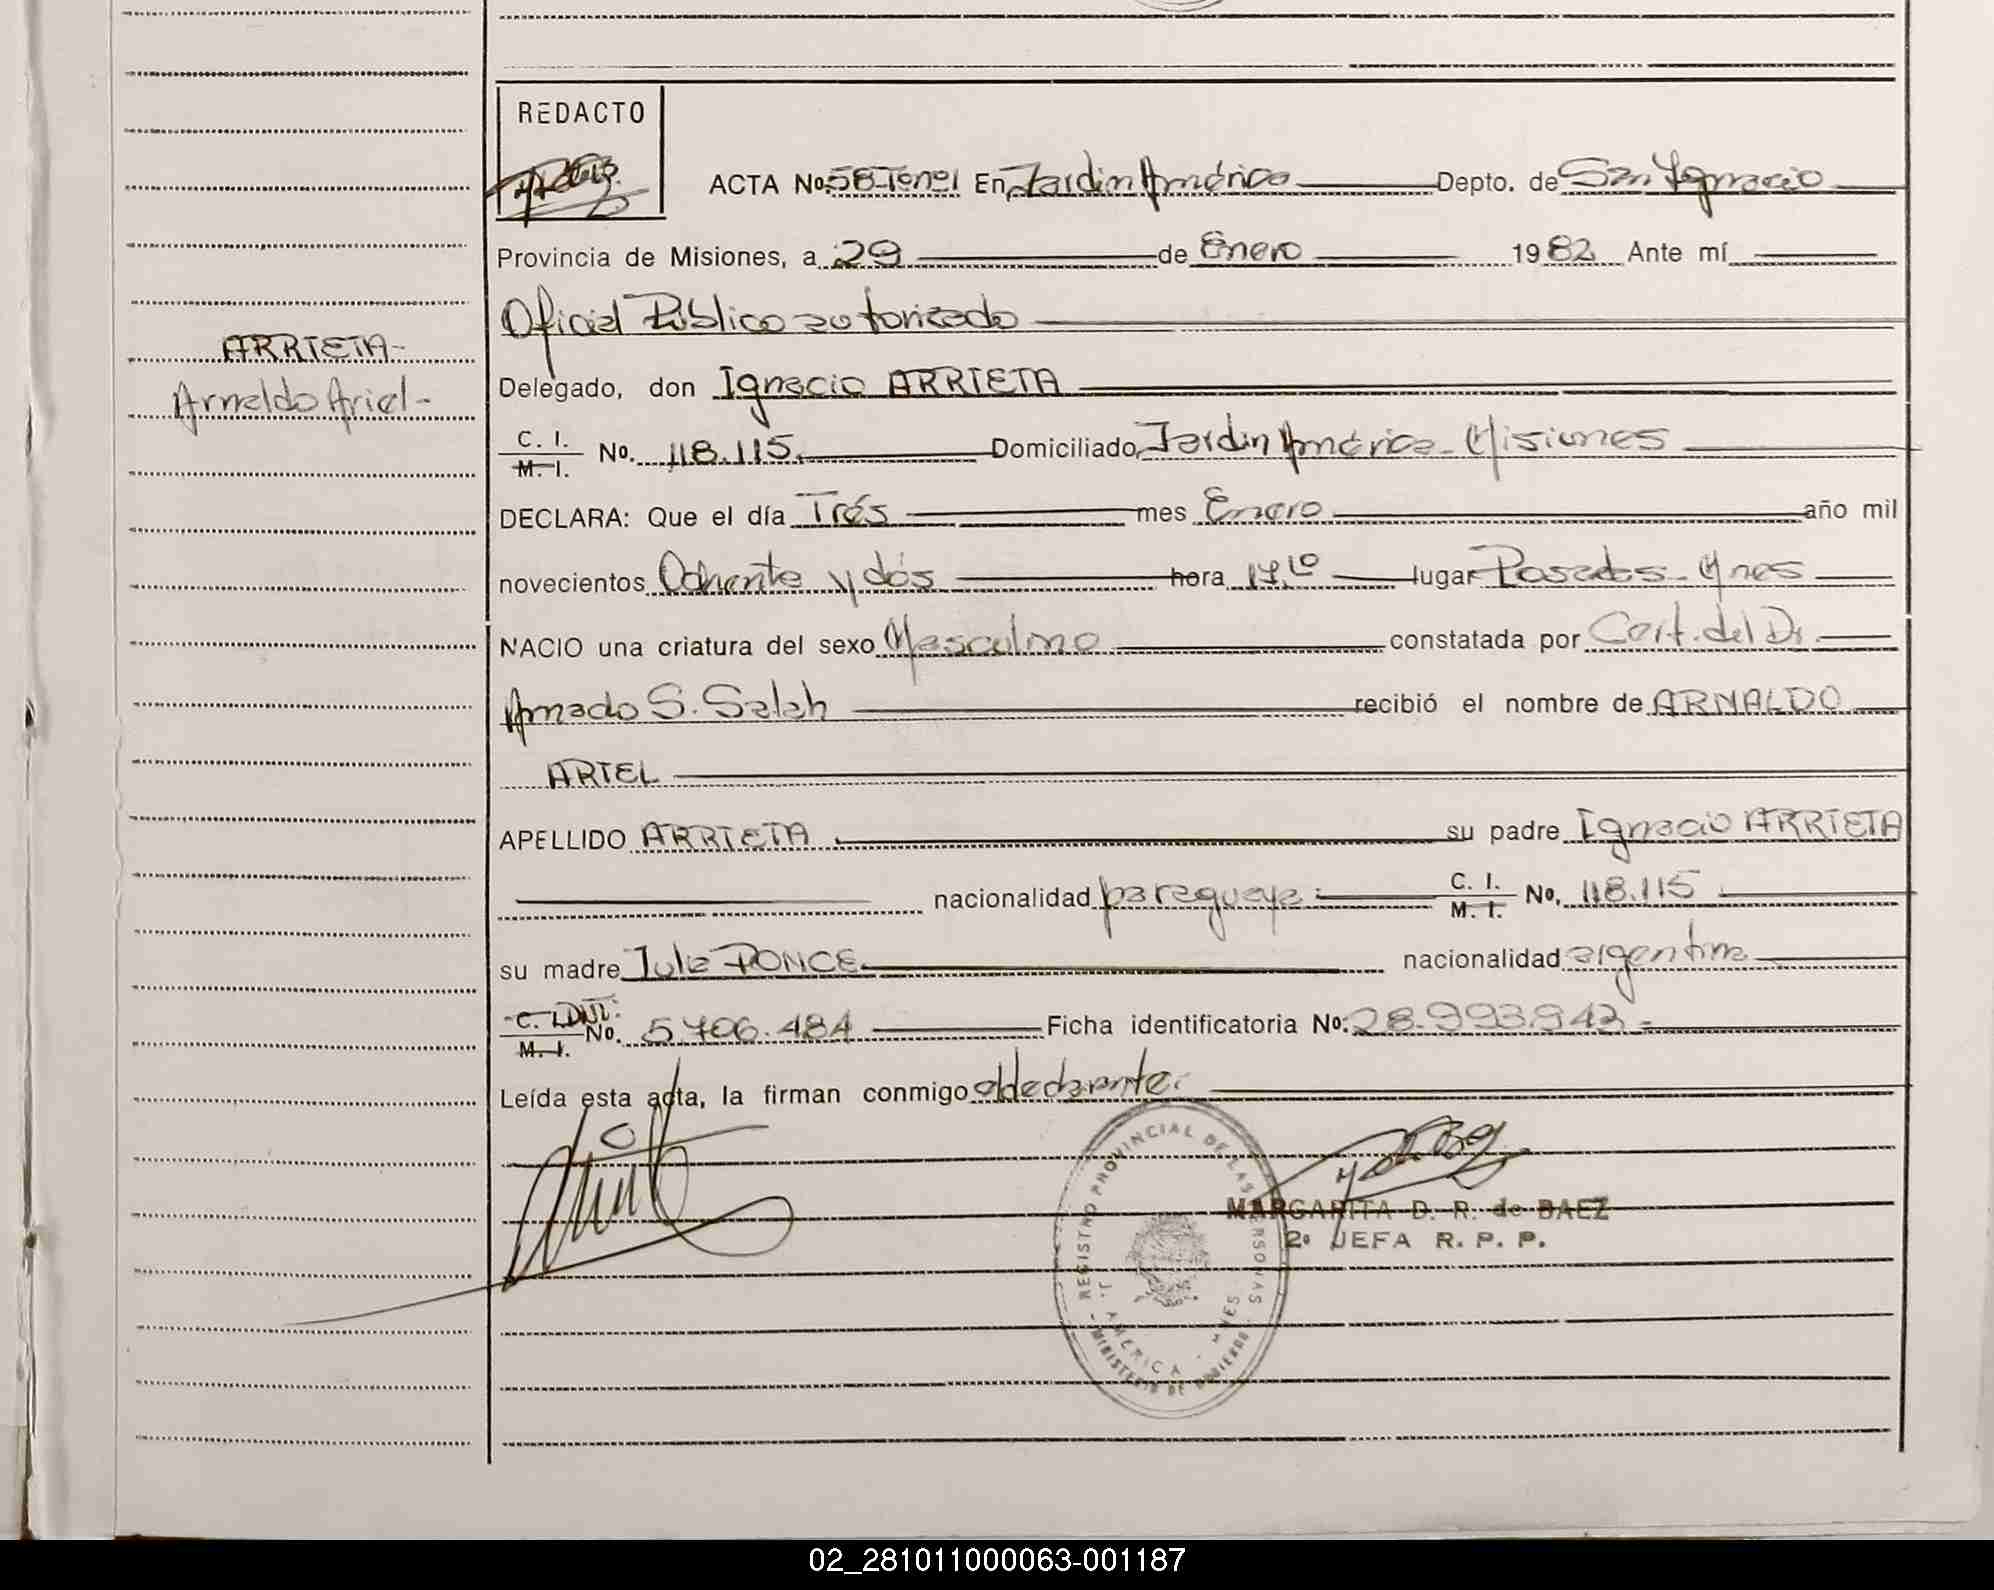 REDACTO
ACTA No. 58-Tomo I En Jardin América Depto. de San Ignacio
Provincia de Misiones, a 29 de Enero 1982 Ante mí
Oficial Público autorizado
ARRIETA-
Arnaldo Ariel-
Delegado, don Ignacio ARRIETA
C. I.
M. I. No. 118.115. Domiciliado Jardin América - Misiones
DECLARA: Que el día Trés mes Enero año mil
novecientos Ochenta y dós hora lugar Posadas - Mnes
NACIO una criatura del sexo Masculino constatada por Cert. del Dr.
Amado S. Salah recibió el nombre de ARNALDO
ARIEL
APELLIDO ARRIETA su padre Ignacio ARRIETA
nacionalidad paraguaya C. I.
M. I. No. 118.115
su madre Julia PONCE nacionalidad argentina
C. I. DNI.
M. I. No. 5.706.484 Ficha identificatoria No: 28.993.943-
Leída esta acta, la firman conmigo el declarante.
REGISTRO PROVINCIAL DE LAS PERSONAS
J. AMERICA - MNES
MINISTERIO DE GOBIERNO
MARGARITA D. R. de BAEZ
2º JEFA R. P. P.
02_281011000063-001187